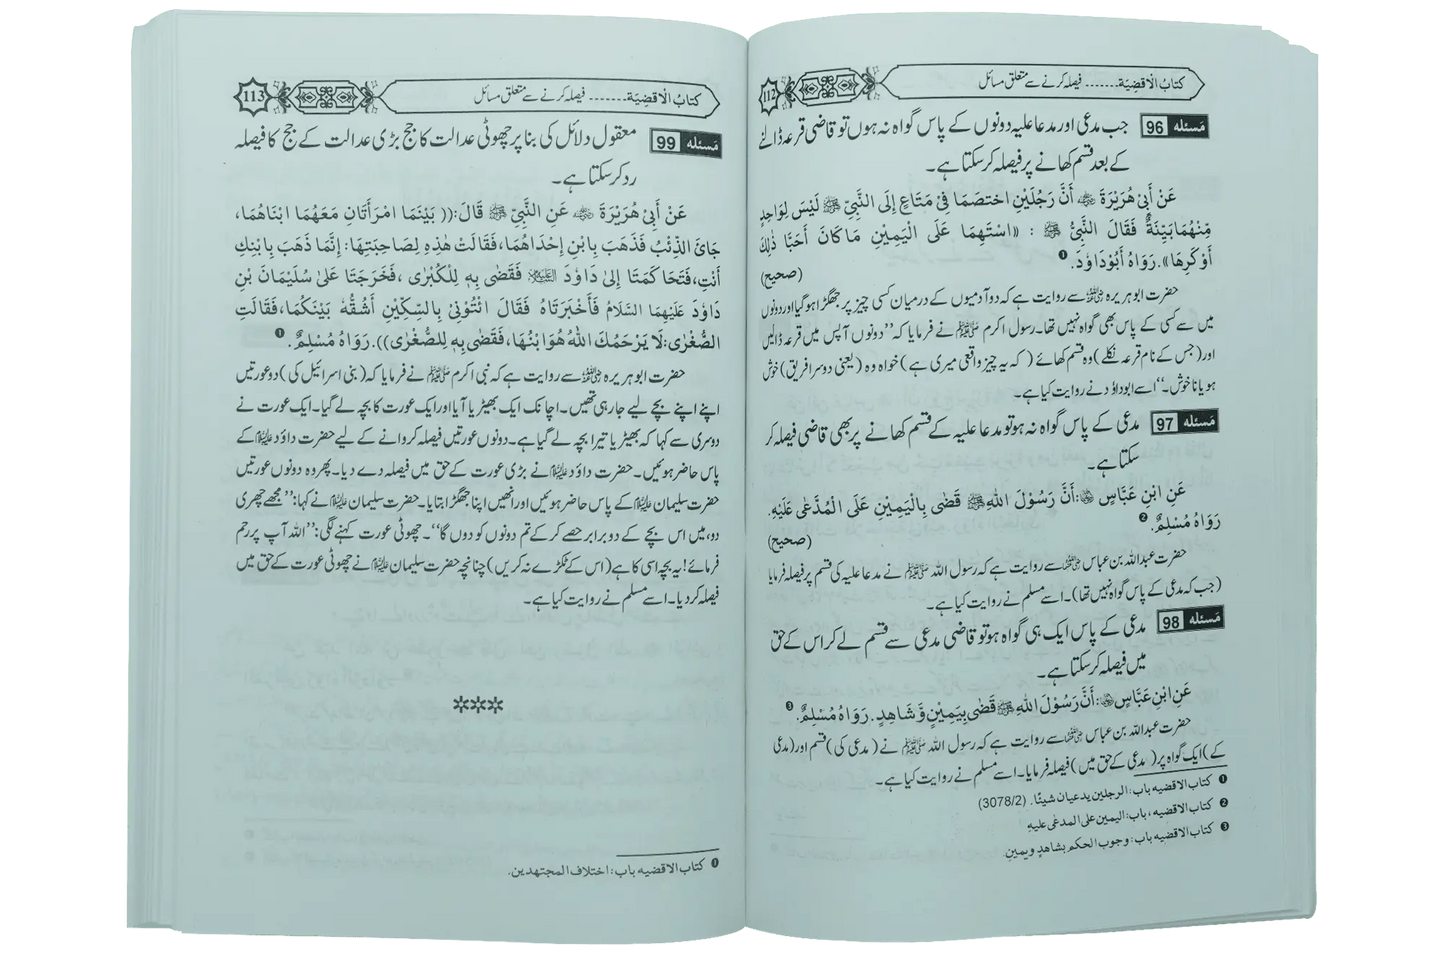 112
کتابُ الْاقضِیَة ....... فیصلہ کرنے سے متعلق مسائل
مَسئله 96 جب مدعی اور مدعا علیہ دونوں کے پاس گواہ نہ ہوں تو قاضی قرعہ ڈالنے
کے بعد قسم کھانے پر فیصلہ کر سکتا ہے۔
عَنْ أَبِیْ هُرَيْرَةَ ﷺ أَنَّ رَجُلَيْنِ اخْتَصَمَا فِیْ مَتَاعٍ إِلَی النَّبِیِّ ﷺ لَيْسَ لِوَاحِدٍ
مِّنْهُمَا بَيِّنَةٌ فَقَالَ النَّبِیُّ ﷺ : «اسْتَهِمَا عَلَی الْيَمِيْنِ مَا کَانَ أَحَبَّا ذٰلِكَ
أَوْ کَرِهَا». رَوَاهُ أَبُوْدَاوُدَ. ❶
(صحیح)
حضرت ابو ہریرہ رضی اللہ عنہ سے روایت ہے کہ دو آدمیوں کے درمیان کسی چیز پر جھگڑا ہو گیا اور دونوں
میں سے کسی کے پاس بھی گواہ نہیں تھا۔ رسول اکرم ﷺ نے فرمایا کہ ’’دونوں آپس میں قرعہ ڈالیں
اور (جس کے نام قرعہ نکلے) وہ قسم کھائے ( کہ یہ چیز واقعی میری ہے ) خواہ وہ (یعنی دوسرا فریق) خوش
ہو یا ناخوش۔‘‘ اسے ابوداؤد نے روایت کیا ہے۔
مَسئله 97 مدعی کے پاس گواہ نہ ہو تو مدعا علیہ کے قسم کھانے پر بھی قاضی فیصلہ کر
سکتا ہے۔
عَنِ ابْنِ عَبَّاسٍ : أَنَّ رَسُوْلَ اللّٰهِ ﷺ قَضٰی بِالْيَمِيْنِ عَلَی الْمُدَّعٰی عَلَيْهِ.
رَوَاهُ مُسْلِمٌ. ❷
(صحیح)
حضرت عبداللہ بن عباس رضی اللہ عنہما سے روایت ہے کہ رسول اللہ ﷺ نے مدعا علیہ کی قسم پر فیصلہ فرمایا
(جب کہ مدعی کے پاس گواہ نہیں تھا)۔ اسے مسلم نے روایت کیا ہے۔
مَسئله 98 مدعی کے پاس ایک ہی گواہ ہو تو قاضی مدعی سے قسم لے کر اس کے حق
میں فیصلہ کر سکتا ہے۔
عَنِ ابْنِ عَبَّاسٍ : أَنَّ رَسُوْلَ اللّٰهِ ﷺ قَضٰی بِيَمِيْنٍ وَّ شَاهِدٍ. رَوَاهُ مُسْلِمٌ. ❸
حضرت عبداللہ بن عباس رضی اللہ عنہما سے روایت ہے کہ رسول اللہ ﷺ نے ( مدعی کی ) قسم اور (مدعی
کے ) ایک گواہ پر ( مدعی کے حق میں ) فیصلہ فرمایا۔ اسے مسلم نے روایت کیا ہے۔
❶ کتاب الاقضیه باب: الرجلین یدعیان شیئًا. (3078/2)
❷ کتاب الاقضیه، باب: الیمین علی المدعٰی علیهِ
❸ کتاب الاقضیه باب: وجوب الحکم بشاهدٍ ویمینٍ.
113
کتابُ الْاقضِیَة ....... فیصلہ کرنے سے متعلق مسائل
مَسئله 99 معقول دلائل کی بنا پر چھوٹی عدالت کا جج بڑی عدالت کے جج کا فیصلہ
رد کر سکتا ہے۔
عَنْ أَبِیْ هُرَيْرَةَ عَنِ النَّبِیِّ ﷺ قَالَ: (( بَيْنَمَا امْرَأَتَانِ مَعَهُمَا ابْنَاهُمَا،
جَائَ الذِّئْبُ فَذَهَبَ بِابْنِ إِحْدَاهُمَا، فَقَالَتْ هٰذِهٖ لِصَاحِبَتِهَا: إِنَّمَا ذَهَبَ بِابْنِكِ
أَنْتِ، فَتَحَاکَمَتَا إِلٰی دَاوُدَ علیہ السلام فَقَضٰی بِهٖ لِلْکُبْرٰی ، فَخَرَجَتَا عَلٰی سُلَيْمَانَ بْنِ
دَاوُدَ عَلَيْهِمَا السَّلَامُ فَأَخْبَرَتَاهُ فَقَالَ ائْتُوْنِیْ بِالسِّکِّيْنِ أَشُقُّهُ بَيْنَکُمَا، فَقَالَتِ
الصُّغْرٰی: لَا يَرْحَمُكَ اللّٰهُ هُوَ ابْنُهَا، فَقَضٰی بِهٖ لِلصُّغْرٰی)). رَوَاهُ مُسْلِمٌ. ❶
حضرت ابو ہریرہ رضی اللہ عنہ سے روایت ہے کہ نبی اکرم ﷺ نے فرمایا کہ (بنی اسرائیل کی ) دو عورتیں
اپنے اپنے بچے لیے جا رہی تھیں۔ اچانک ایک بھیڑیا آیا اور ایک عورت کا بچہ لے گیا۔ ایک عورت نے
دوسری سے کہا کہ بھیڑیا تیرا بچہ لے گیا ہے۔ دونوں عورتیں فیصلہ کروانے کے لیے حضرت داؤد علیہ السلام کے
پاس حاضر ہوئیں۔ حضرت داؤد علیہ السلام نے بڑی عورت کے حق میں فیصلہ دے دیا۔ پھر وہ دونوں عورتیں
حضرت سلیمان علیہ السلام کے پاس حاضر ہوئیں اور انھیں اپنا جھگڑا بتایا۔ حضرت سلیمان علیہ السلام نے کہا: ’’مجھے چھری
دو، میں اس بچے کے دو برابر حصے کر کے تم دونوں کو دوں گا‘‘۔ چھوٹی عورت کہنے لگی: ’’اللہ آپ پر رحم
فرمائے! یہ بچہ اسی کا ہے (اس کے ٹکڑے نہ کریں) چنانچہ حضرت سلیمان علیہ السلام نے چھوٹی عورت کے حق میں
فیصلہ کر دیا۔ اسے مسلم نے روایت کیا ہے۔
***
❶ کتاب الاقضیه باب: اختلاف المجتهدین.